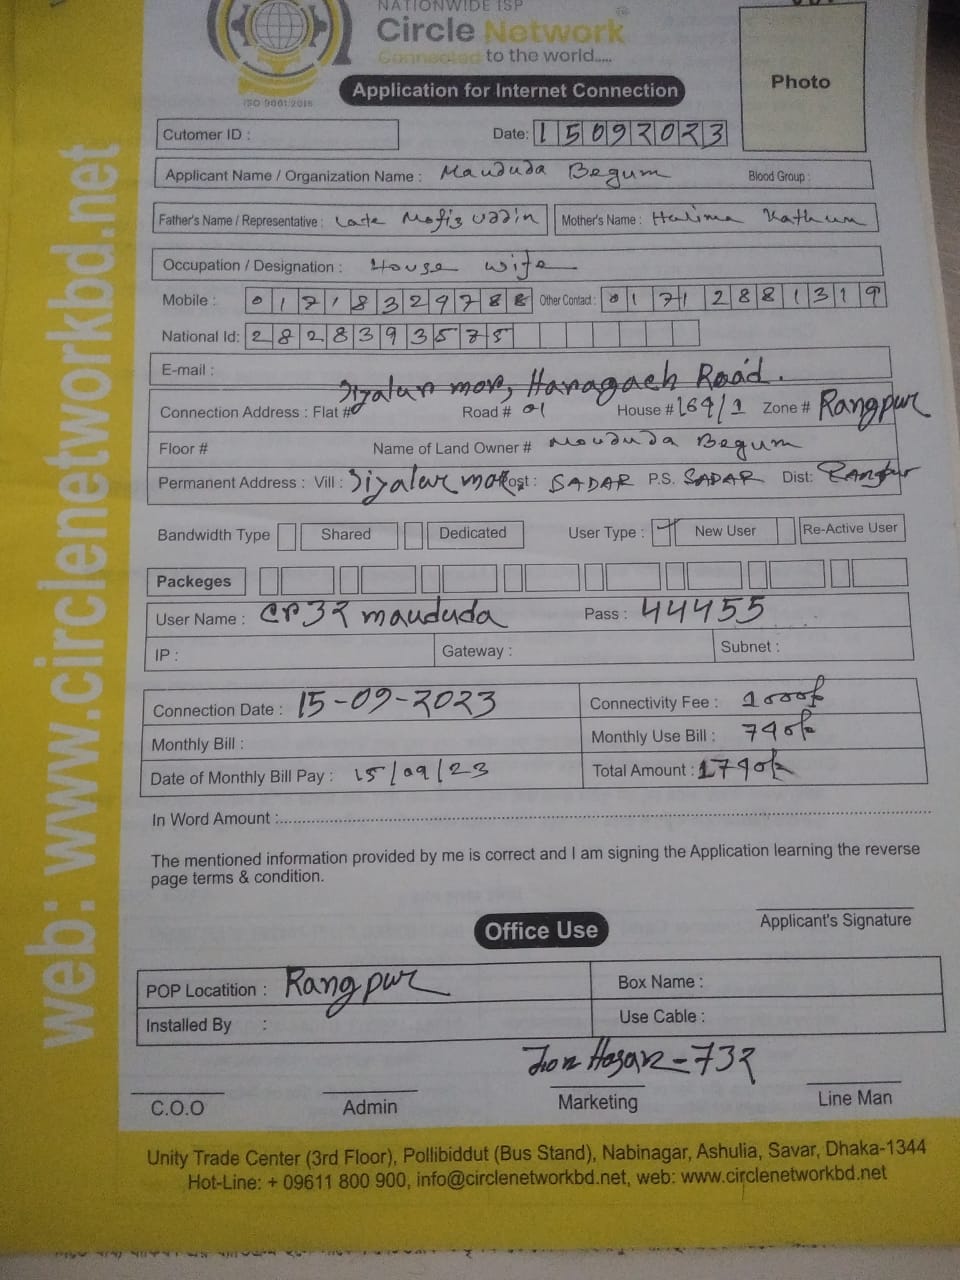 NATIONWIDE ISP
Circle Network
Connected to the world.....
ISO 9001:2015
Application for Internet Connection
Photo
Cutomer ID :
Date: 15092023
Applicant Name / Organization Name : Maududa Begum Blood Group :
Father's Name / Representative : Late Mofiz uddin Mother's Name : Halima Kathun
Occupation / Designation : House wife
Mobile : 01718329788 Other Contact : 01712881319
National Id: 2828393575
E-mail :
Jiyalur mor, Haragach Road.
Connection Address : Flat # Road # 01 House # 169/1 Zone # Rangpur
Floor # Name of Land Owner # Moududa Begum
Permanent Address : Vill : Jiyalur mor Post : SADAR P.S. SADAR Dist: Rangpur
Bandwidth Type Shared Dedicated User Type : New User Re-Active User
Packeges
User Name : cr32 maududa Pass : 44455
IP : Gateway : Subnet :
Connection Date : 15-09-2023 Connectivity Fee : 1000/-
Monthly Bill : Monthly Use Bill : 790/-
Date of Monthly Bill Pay : 15/09/23 Total Amount : 1790/-
In Word Amount :
The mentioned information provided by me is correct and I am signing the Application learning the reverse
page terms & condition.
Applicant's Signature
Office Use
POP Locatition : Rangpur Box Name :
Installed By : Use Cable :
Hasan-732
C.O.O Admin Marketing Line Man
Unity Trade Center (3rd Floor), Pollibiddut (Bus Stand), Nabinagar, Ashulia, Savar, Dhaka-1344
Hot-Line: + 09611 800 900, info@circlenetworkbd.net, web: www.circlenetworkbd.net
web: www.circlenetworkbd.net